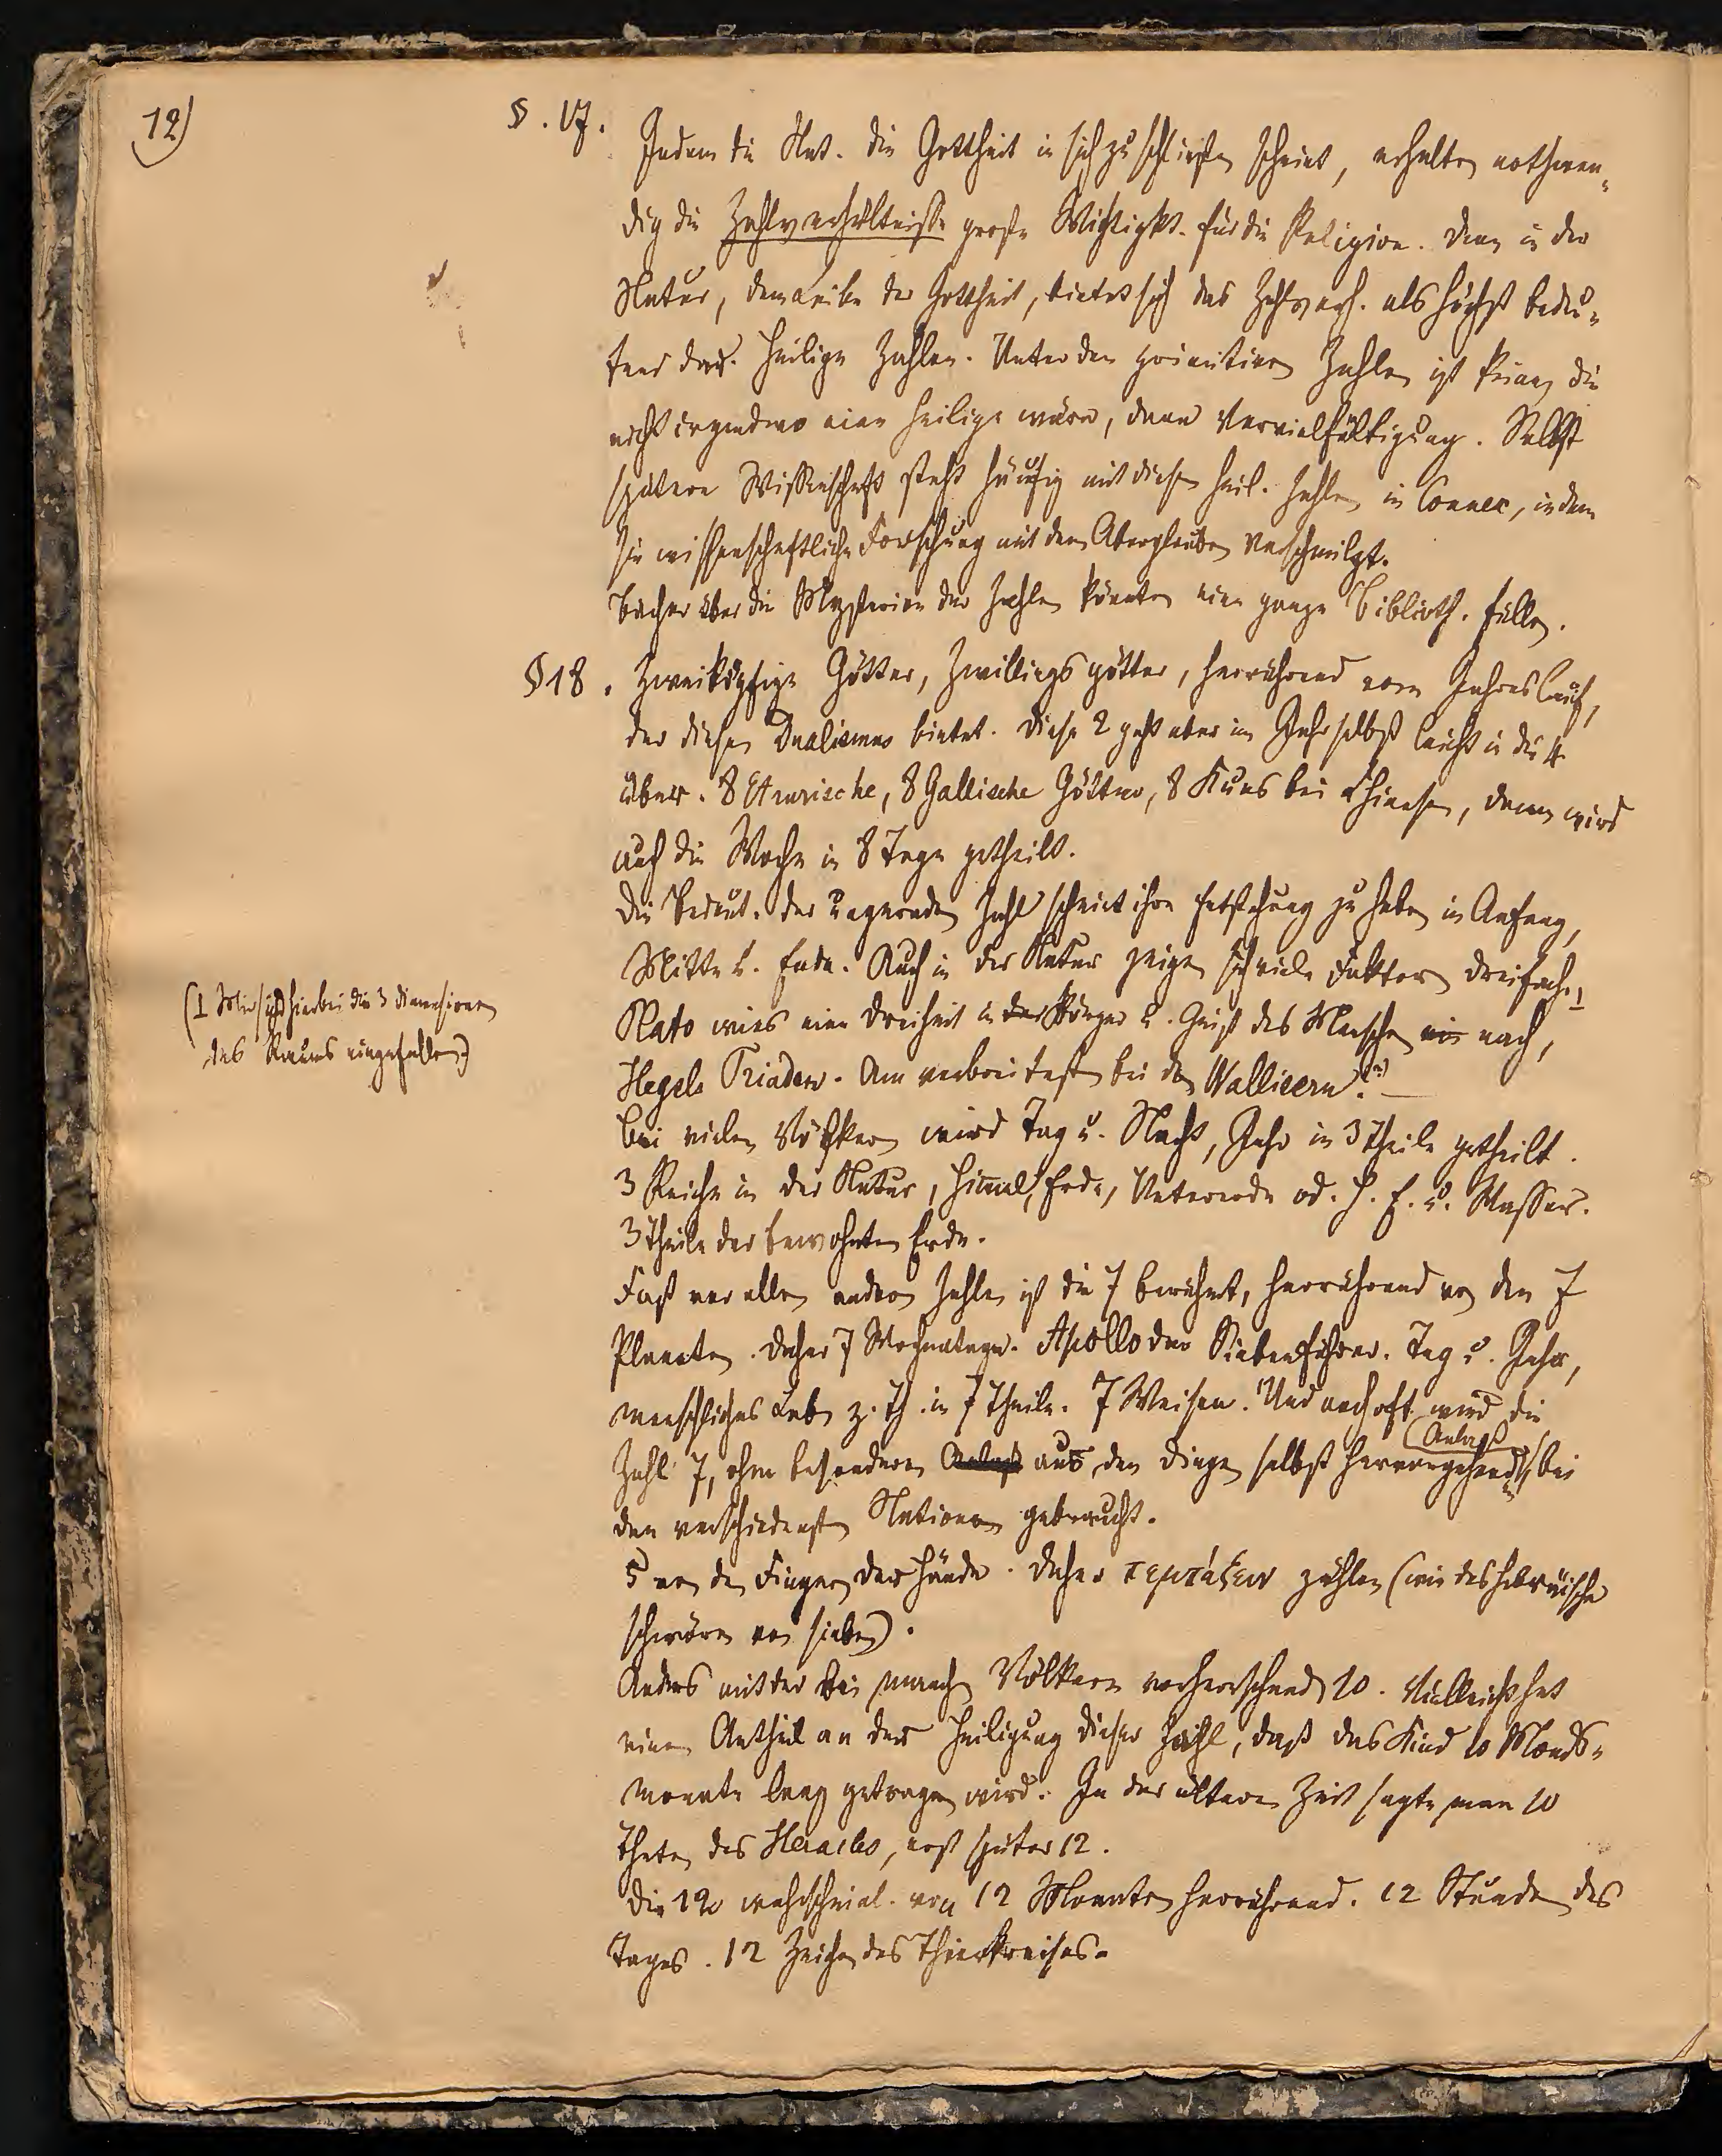 12)
§. 17. Indem die Nat. die Gottheit in sich zu schließen scheint, erhalten nothwen-
dig die Zahlverhältnisse große Wichtigkt. für die Religion. Denn in der
Natur, dem Leibe der Gottheit, bietet sich das Zahlverh. als höchst bedeu-
tend dar. Heilige Zahlen. Unter den primitiven Zahlen ist keine, die
nicht irgendwo eine heilige wäre, dann Vervielfältigung. Selbst
spätere Wissenschaft steht häufig mit diesen heil. Zahlen in Connex, indem
sie wissenschaftliche Forschung mit dem Aberglauben verschmilzt.
Bücher über die Mysterien der Zahlen könnten eine ganze Biblioth. füllen.
§18. Zweiköpfige Götter, Zwillingsgötter, herrührend vom Jahreslauf,
der diesen Dualismus bietet. Diese 2 geht aber im Jahr selbst leicht in die 4
über. 8 Etrurische, 8 Gallische Götter, 8 Kuas bei Chinesen, denen wird
auch die Woche in 8 Tage getheilt.
Die Bedeut. der ungeraden Zahl scheint ihre Entstehung zu haben in Anfang,
Mitte u. Ende. Auch in der Natur zeigen sich viele Faktoren dreifach,⊥
(⊥ Mir sind hierbei die 3 Dimensionen
des Raums eingefallen.)
Plato wies eine Dreiheit in der Körper u. Geist des Menschen nach,
Hegels Triaden. Am verbreitesten bei den Wallisern(?). —
Bei vielen Völkern wird Tag u. Nacht, Jahr in 3 Theile getheilt.
3 Reiche in der Natur, Himmel, Erde, Unterwelt od. H. E. u. Wasser.
3 Theile der bewohnten Erde.
Fast vor allen andern Zahlen ist die 7 berühmt, herrührend von den 7
Planeten. Daher 7 Wochentage. Apollo der Siebenführer. Tag u. Jahr,
menschliches Leben z. Th. in 7 Theile. 7 Weisen. Und noch oft wird die
Zahl 7, ohne besonderen Anlaß aus den Dingen selbst hervorgehend (Anlaß), bei
den verschiedensten Nationen gebraucht.
5 von den Fingern der Hände. Daher πεμπάζειν zählen (wie das hebräische
schwören von sieben).
Anders mit der bei manchen Völkern vorherrschenden 10. Vielleicht hat
einen Antheil an der Heiligung dieser Zahl, daß das Kind 10 Monds-
monate lang getragen wird. In der älteren Zeit sagte man 10
Thaten des Heracles, erst später 12.
Die 12 wahrscheinl. von 12 Monaten herrührend. 12 Stunden des
Tages. 12 Zeichen des Thierkreises.